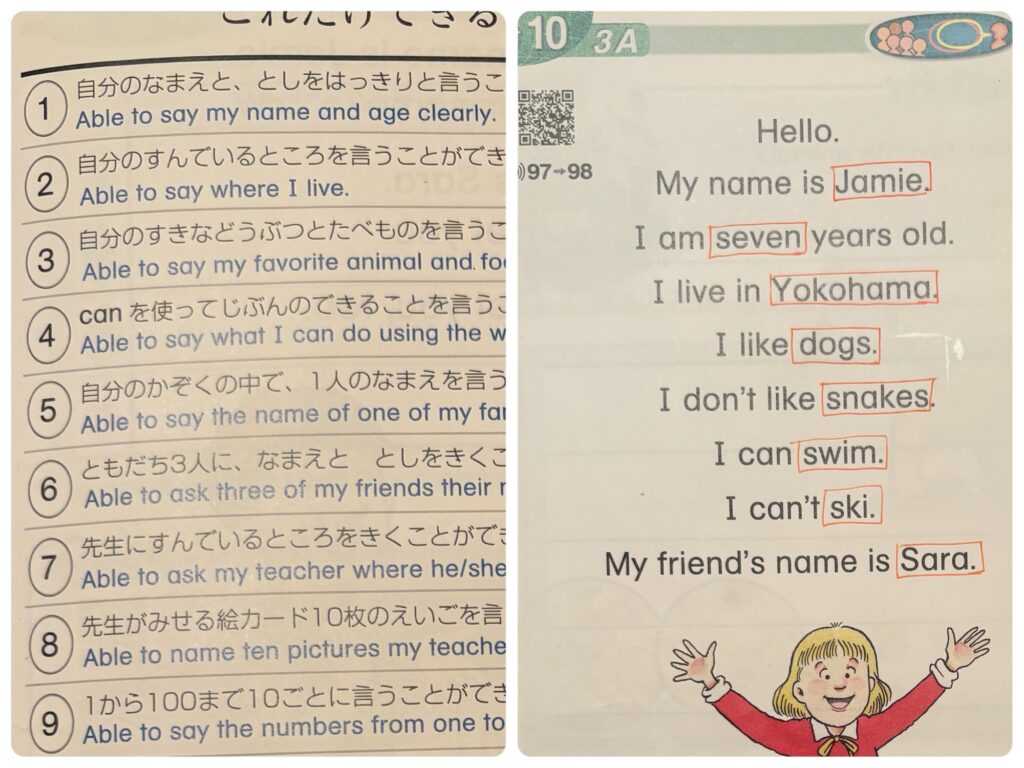 これだけできる
1
自分のなまえと、としをはっきりと言うこ
Able to say my name and age clearly.
2
自分のすんでいるところを言うことができ
Able to say where I live.
3
自分のすきなどうぶつとたべものを言うこ
Able to say my favorite animal and foo
4
can を使ってじぶんのできることを言うこ
Able to say what I can do using the w
5
自分のかぞくの中で、1人のなまえを言う
Able to say the name of one of my fa
6
ともだち3人に、なまえと としをきくこ
Able to ask three of my friends their
7
先生にすんでいるところをきくことができ
Able to ask my teacher where he/she
8
先生がみせる絵カード10枚のえいごを言
Able to name ten pictures my teache
9
1から100まで10ごとに言うことができ
Able to say the numbers from one to
10 3A
97→98
Hello.
My name is Jamie.
I am seven years old.
I live in Yokohama.
I like dogs.
I don't like snakes.
I can swim.
I can't ski.
My friend's name is Sara.